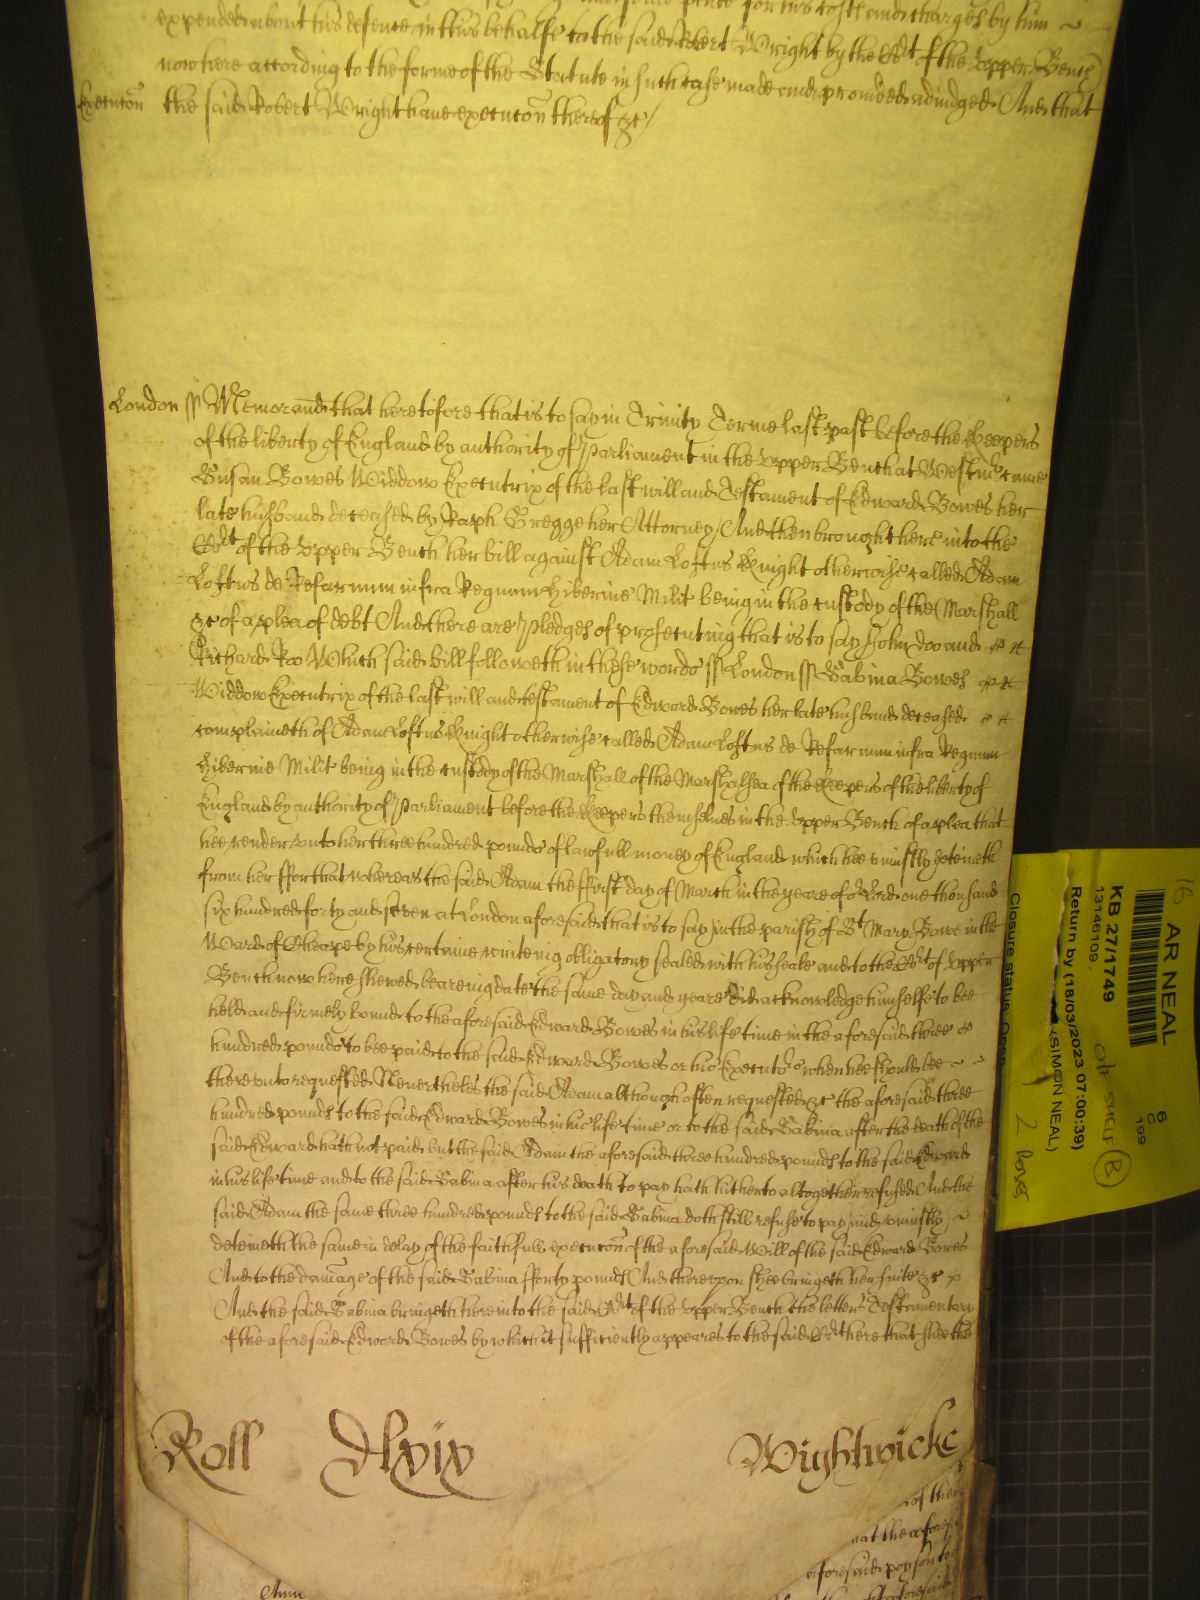 pence for his costs and charges by him
expended about his defence in this behalfe to the said Robert Wright by the Cot of the vpper Bench
now here according to the forme of the Statute in such case made and provided adiudged And that
Execucon the said Robert Wright have execucon thereof &c
London ss Memorand that heretofore that is to say in Trinity Terme last past before the Keepers
of the liberty of England by authority of Parliament in the vpper Bench at Westmr came
Susan Bowes Widdow Executrix of the last will and Testament of Edward Bowes her
late husband deceased by Raph Gregge her Attorney And then brought here into the
Cort of the vpper Bench her bill against Adam Loftus Knight otherwise called Adam
Loftus de Refarnum infra Regnum Hibernie Milit being in the custody of the Marshall
&c of a plea of debt And there are pledges of prosecuting that is to say John Doo and
Richard Roo Which said bill followeth in these words ss London ss Sabina Bowes
Widdow Executrix of the last will and testament of Edward Bowes her late husband deceased
complaineth of Adam Loftus Knight otherwise called Adam Loftus de Refarnum infra Regnum
Hibernie Milit being in the custody of the Marshall of the Marshalsea of the Keepers of the liberty of
England by authority of Parliament before the Keepers themselves in the vpper Bench of a plea that
hee render vnto her three hundred pounds of lawfull money of England which hee vniustly deteineth
from her ffor that whereas the said Adam the ffirst day of March in the yeare of or Lord one thousand
six hundred forty and seven at London aforesaid that is to say in the parish of St Mary Bowe in the
Ward of Cheape by his certaine writeing obligatory sealed with his seale and to the Cort of vpper
Bench now here shewed beareing date the same day and yeare did acknowledge himselfe to bee
held and firmely bound to the aforesaid Edward Bowes in his life time in the aforesaid three
hundred pounds to bee paid to the said Edward Bowes or his Executrs when hee should bee
therevnto requested Neverthelesse the said Adam although often requested &c the aforesaid three
hundred pounds to the said Edward Bowes in his life time or to the said Sabina after the death of the
said Edward hath not paid but the said Adam the aforesaid three hundred pounds to the said Edward
in his life time and to the said Sabina after his death to pay hath hitherto altogether refused And the
said Adam the same three hundred pounds to the said Sabina doth still refuse to pay and vniustly
deteineth the same in delay of the faithfull execucon of the aforesaid Will of the said Edward Bowes
And to the damage of the said Sabina fforty pounds And therevpon shee bringeth her suite &c
And the said Sabina bringeth here into the said Cort of the vpper Bench the letters Testamentary
of the aforesaid Edward Bowes by which it sufficiently appeares to the said Cort here that shee the
Roll Dlxix Wightwicke
of the
at the afores
aforesaid
16
AR NEAL
KB 27/1749
13146109
Return by (18/03/2023 07:00:39)
(SIMON NEAL)
Closure status: Open
O/P SHELF B
2 boxes
6
C
199